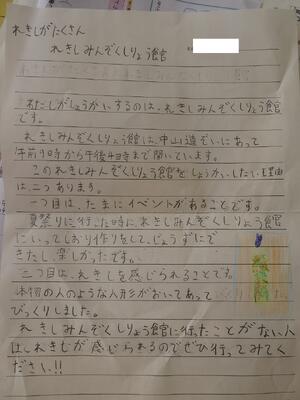 れきしがたくさん
れきしみんぞくしりょう館
わたしがしょうかいするのは、れきしみんぞくしりょう館
です。
れきしみんぞくしりょう館は、中山道ぞいにあって
午前9時から午後4時まで開いています。
このれきしみんぞくしりょう館をしょうかいしたい理由
は、二つあります。
一つ目は、たまにイベントがあることです。
夏祭りに行った時に、れきしみんぞくしりょう館
にいってしおり作りをして、じょうずにで
きたし、楽しかったです。
二つ目は、れきしを感じられることです。
本物の人のような人形がおいてあって
びっくりしました。
れきしみんぞくしりょう館に行ったことがない人
は、れきしが感じられるのでぜひ行ってみてく
ださい!!